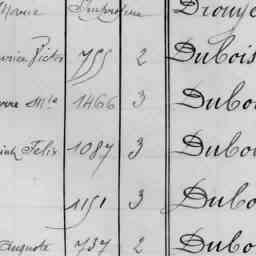 Drouye
Victor 755 2 Dubois
Mle 1466 3 Dubo
Felix 1087 3 Dubo
1151 3 Dubo
Auguste 737 2 Dubo